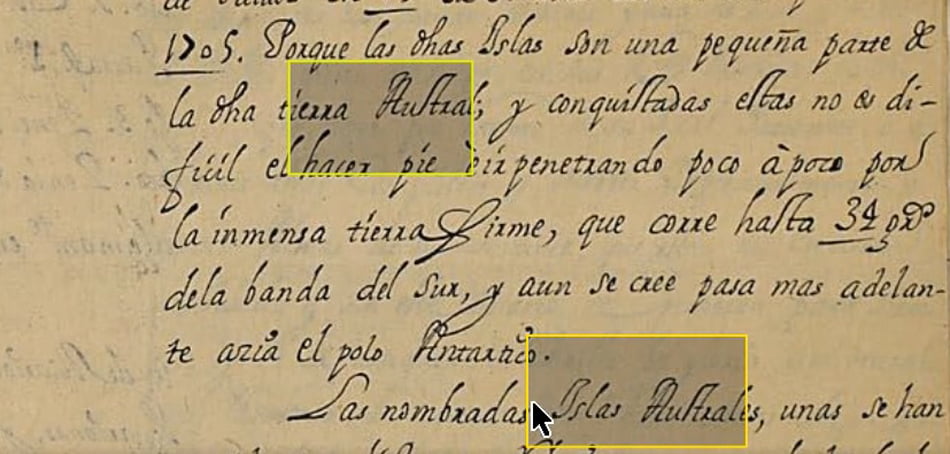 1705. Porque las dhas Islas son una pequeña parte de
la dha tierra Austral; y conquistadas estas no es di-
ficil el hacer pie è ir penetrando poco à poco por
la inmensa tierra Firme, que corre hasta 34 grs
dela banda del Sur, y aun se cree pasa mas adelan-
te azia el polo Antartico.
Las nombradas Islas Australes, unas se han